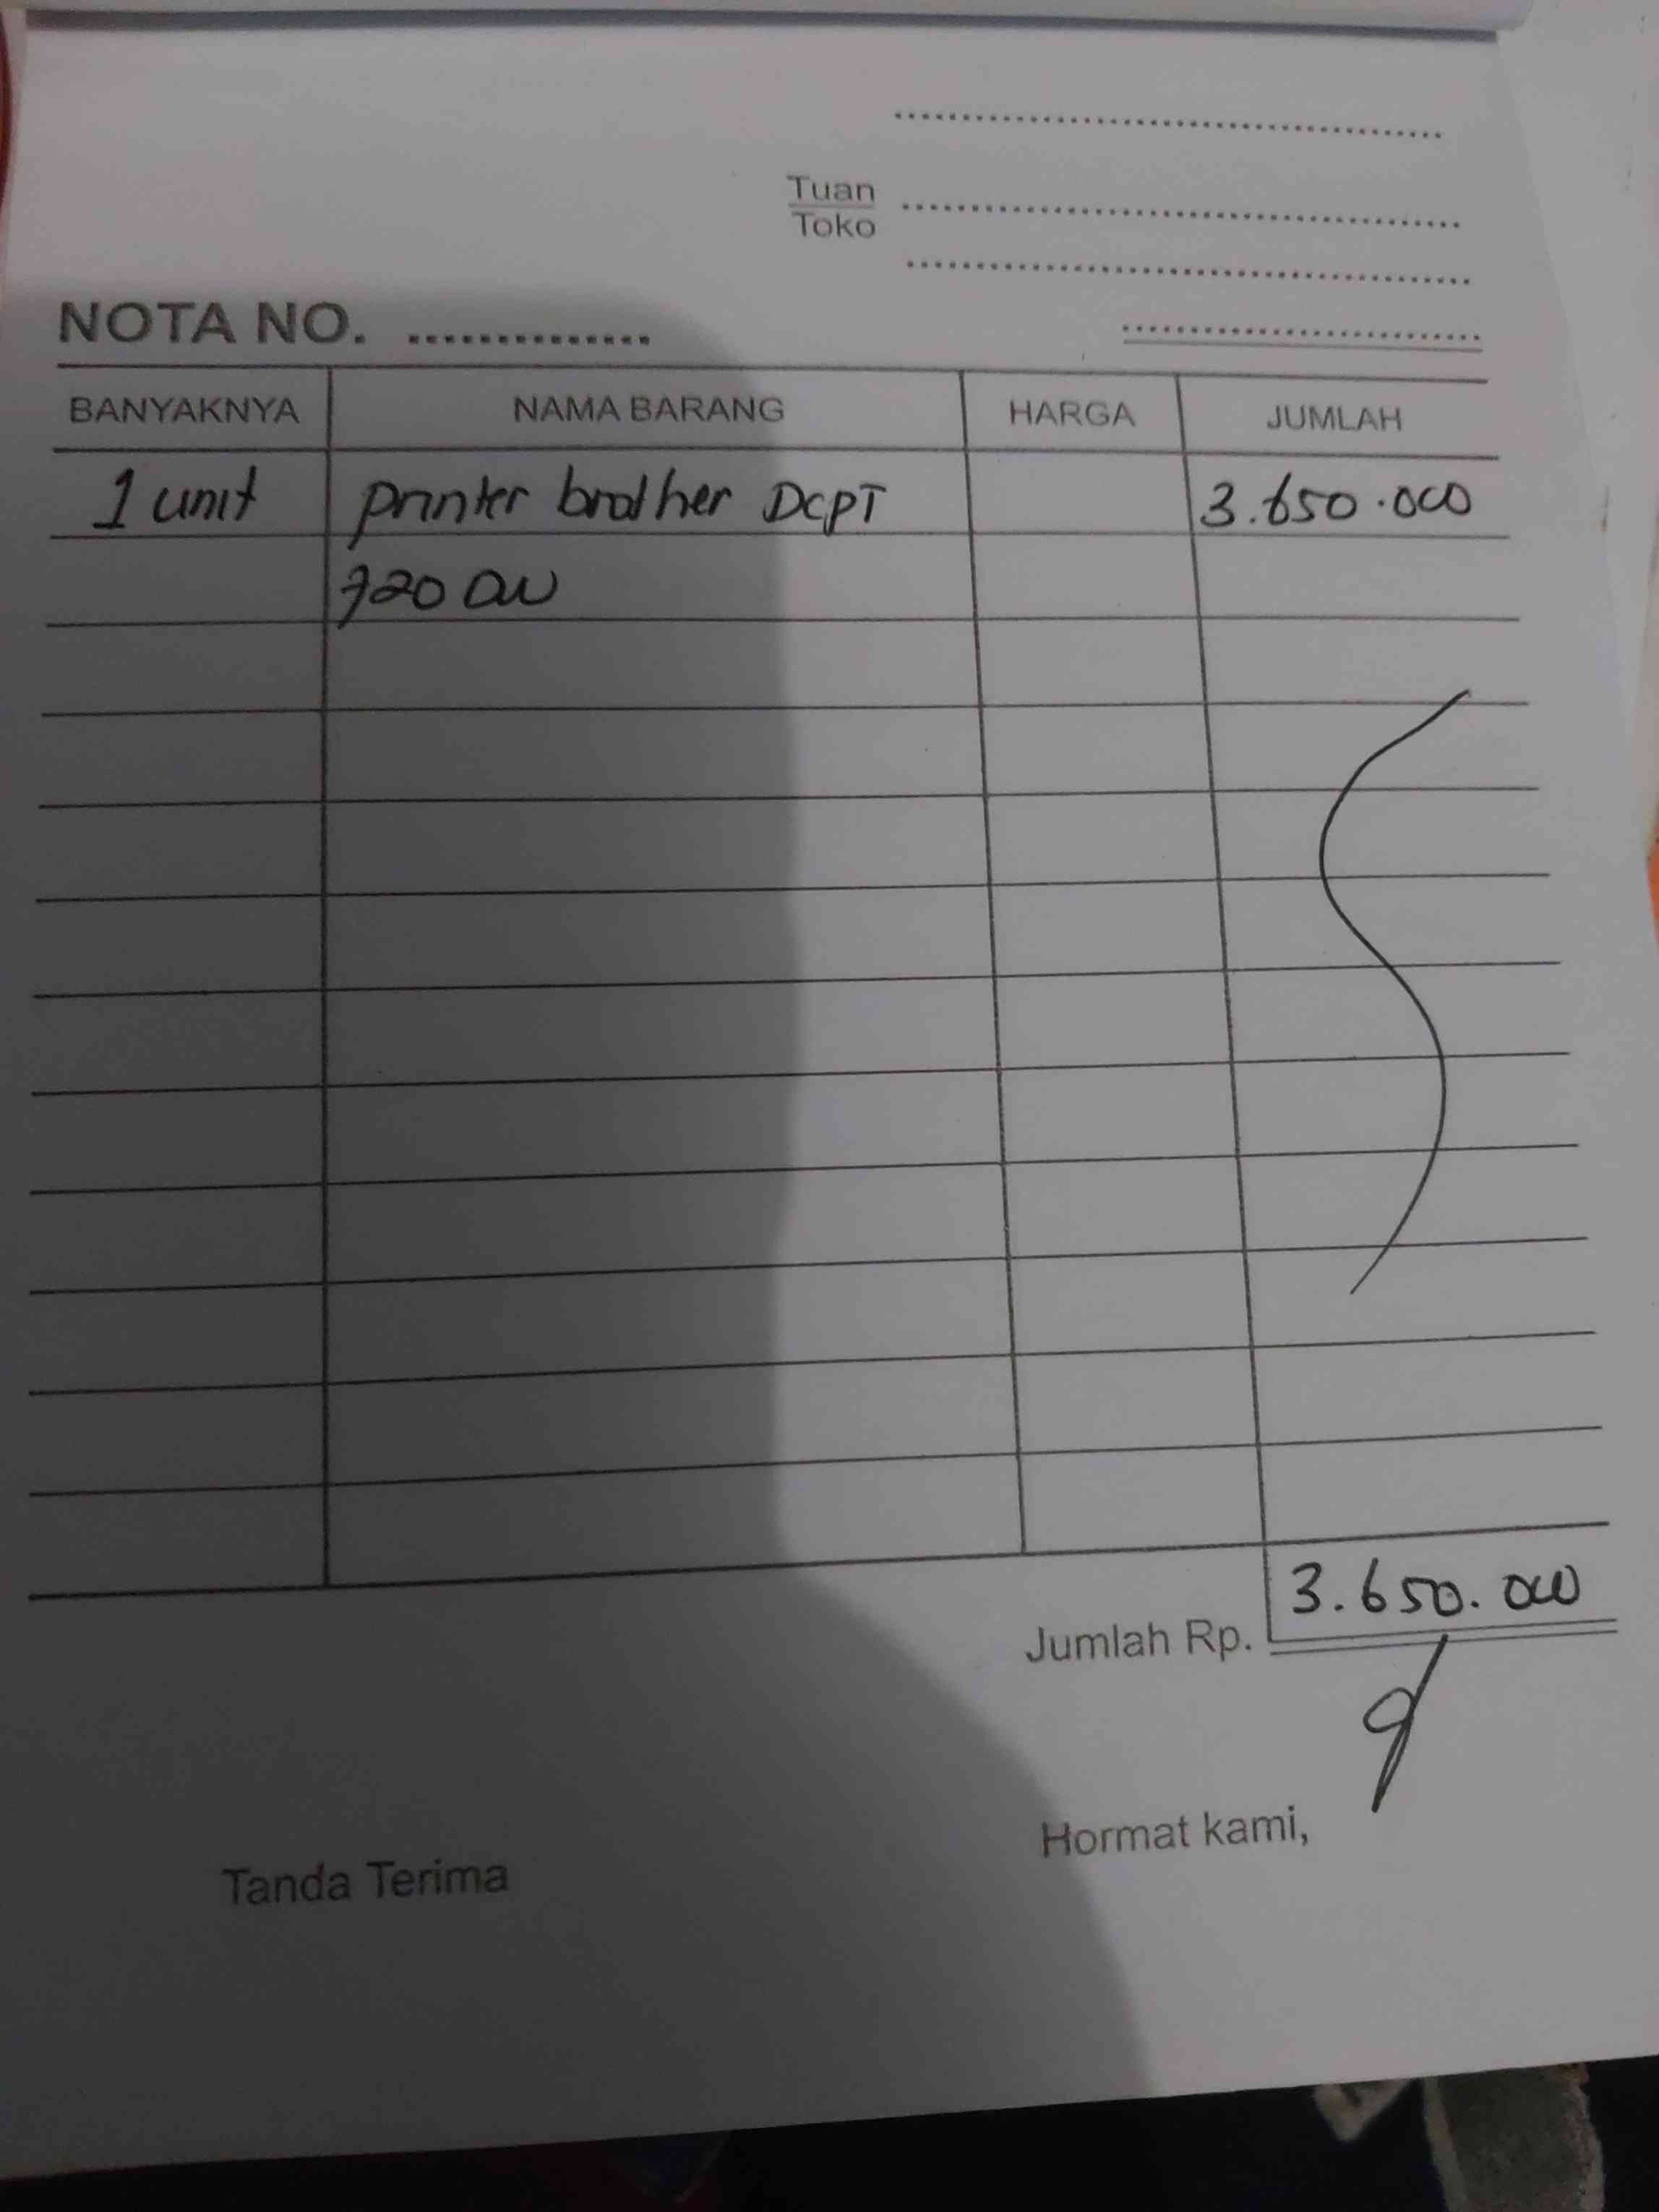 Tuan
Toko
NOTA NO. ..............
BANYAKNYA NAMA BARANG HARGA JUMLAH
1 unit printer brother DCPT 3.650.000
720 DW
Jumlah Rp. 3.650.000
Hormat kami,
Tanda Terima